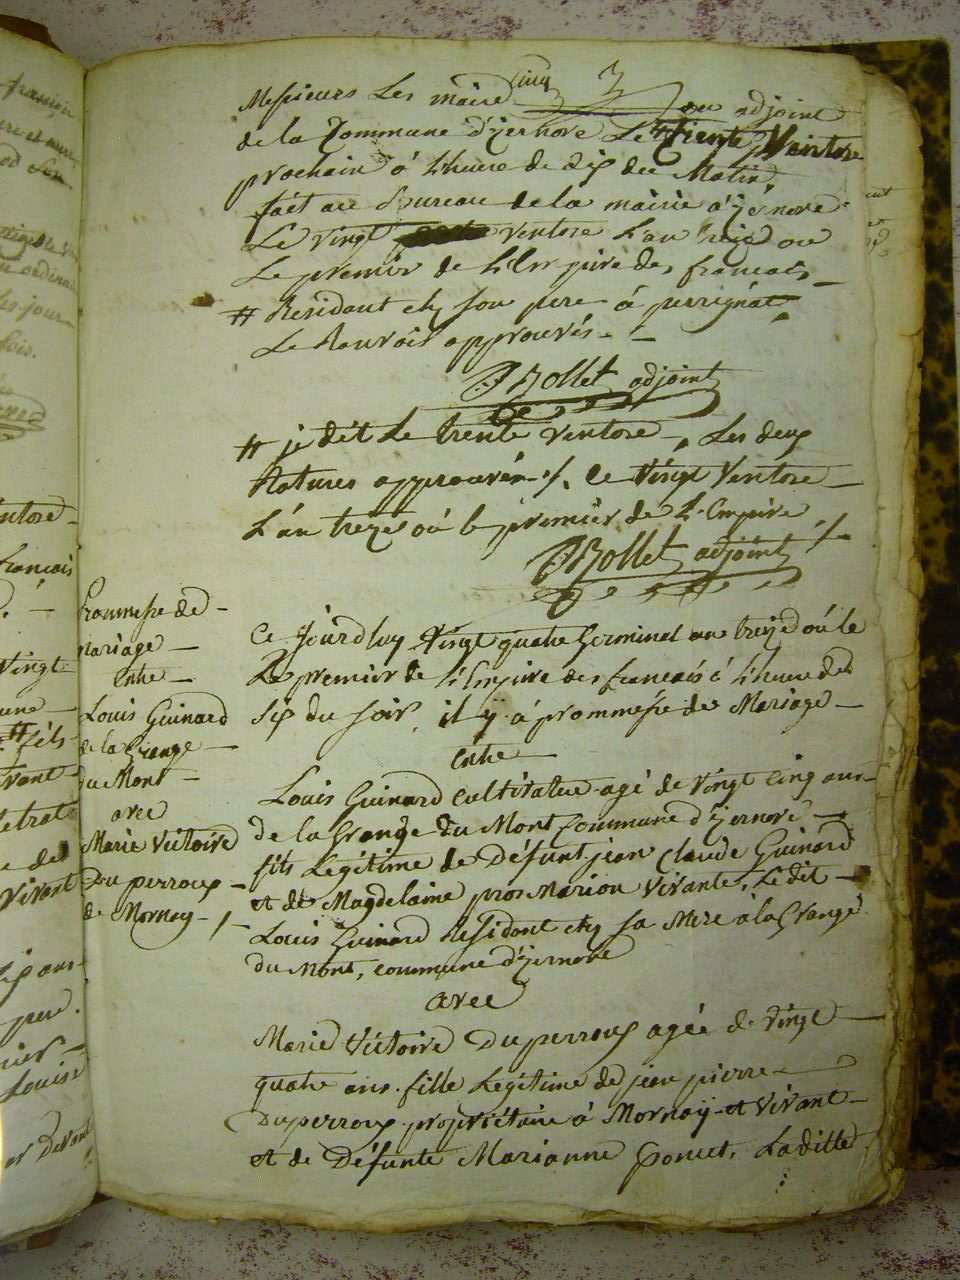 cinq
Messieurs Les maire ou adjoint
de la Commune d'yzernore Le trente Ventose
prochain à L'heure de dix du Matin,
fait au Bureau de la mairie d'yzernore
Le vingt ventose L'an treize ou
Le premier de L'Empire des français
# Residant chez son pere à perrignat,
Le Renvois approuvés
Rollet adjoint
# je dit Le trente ventose, Les deux
Ratures approuvées /. Le Vingt Ventose
L'an treize où le premier de L'Empire
Rollet adjoint /.
Prommesse de
mariage
entre
Louis Guinard
de la Grange
du Mont
avec
Marie Victoire
Duperroux
de Mornay
Ce Jourdhuy Vingt quatre Germinal an treize où le
Le premier de L'Empire des français à L'heure de
Six du soir, il y à prommesse de Mariage
entre
Louis Guinard cultivateur agé de vingt cinq ans
de la Grange du Mont Commune d'yzernore
fils Legitime de Défunt jean Claude Guinard
et de Magdelaine prosMarion Vivante, Le dit
Louis Guinard Residant chez sa Mere à la Grange
du Mont, commune d'yzernore
avec
Marie Victoire Duperroux agée de vingt
quatre ans fille Legitime de jean pierre
Duperroux proprietaire à Mornay et vivant
et de Défunte Marianne poncet, Laditte